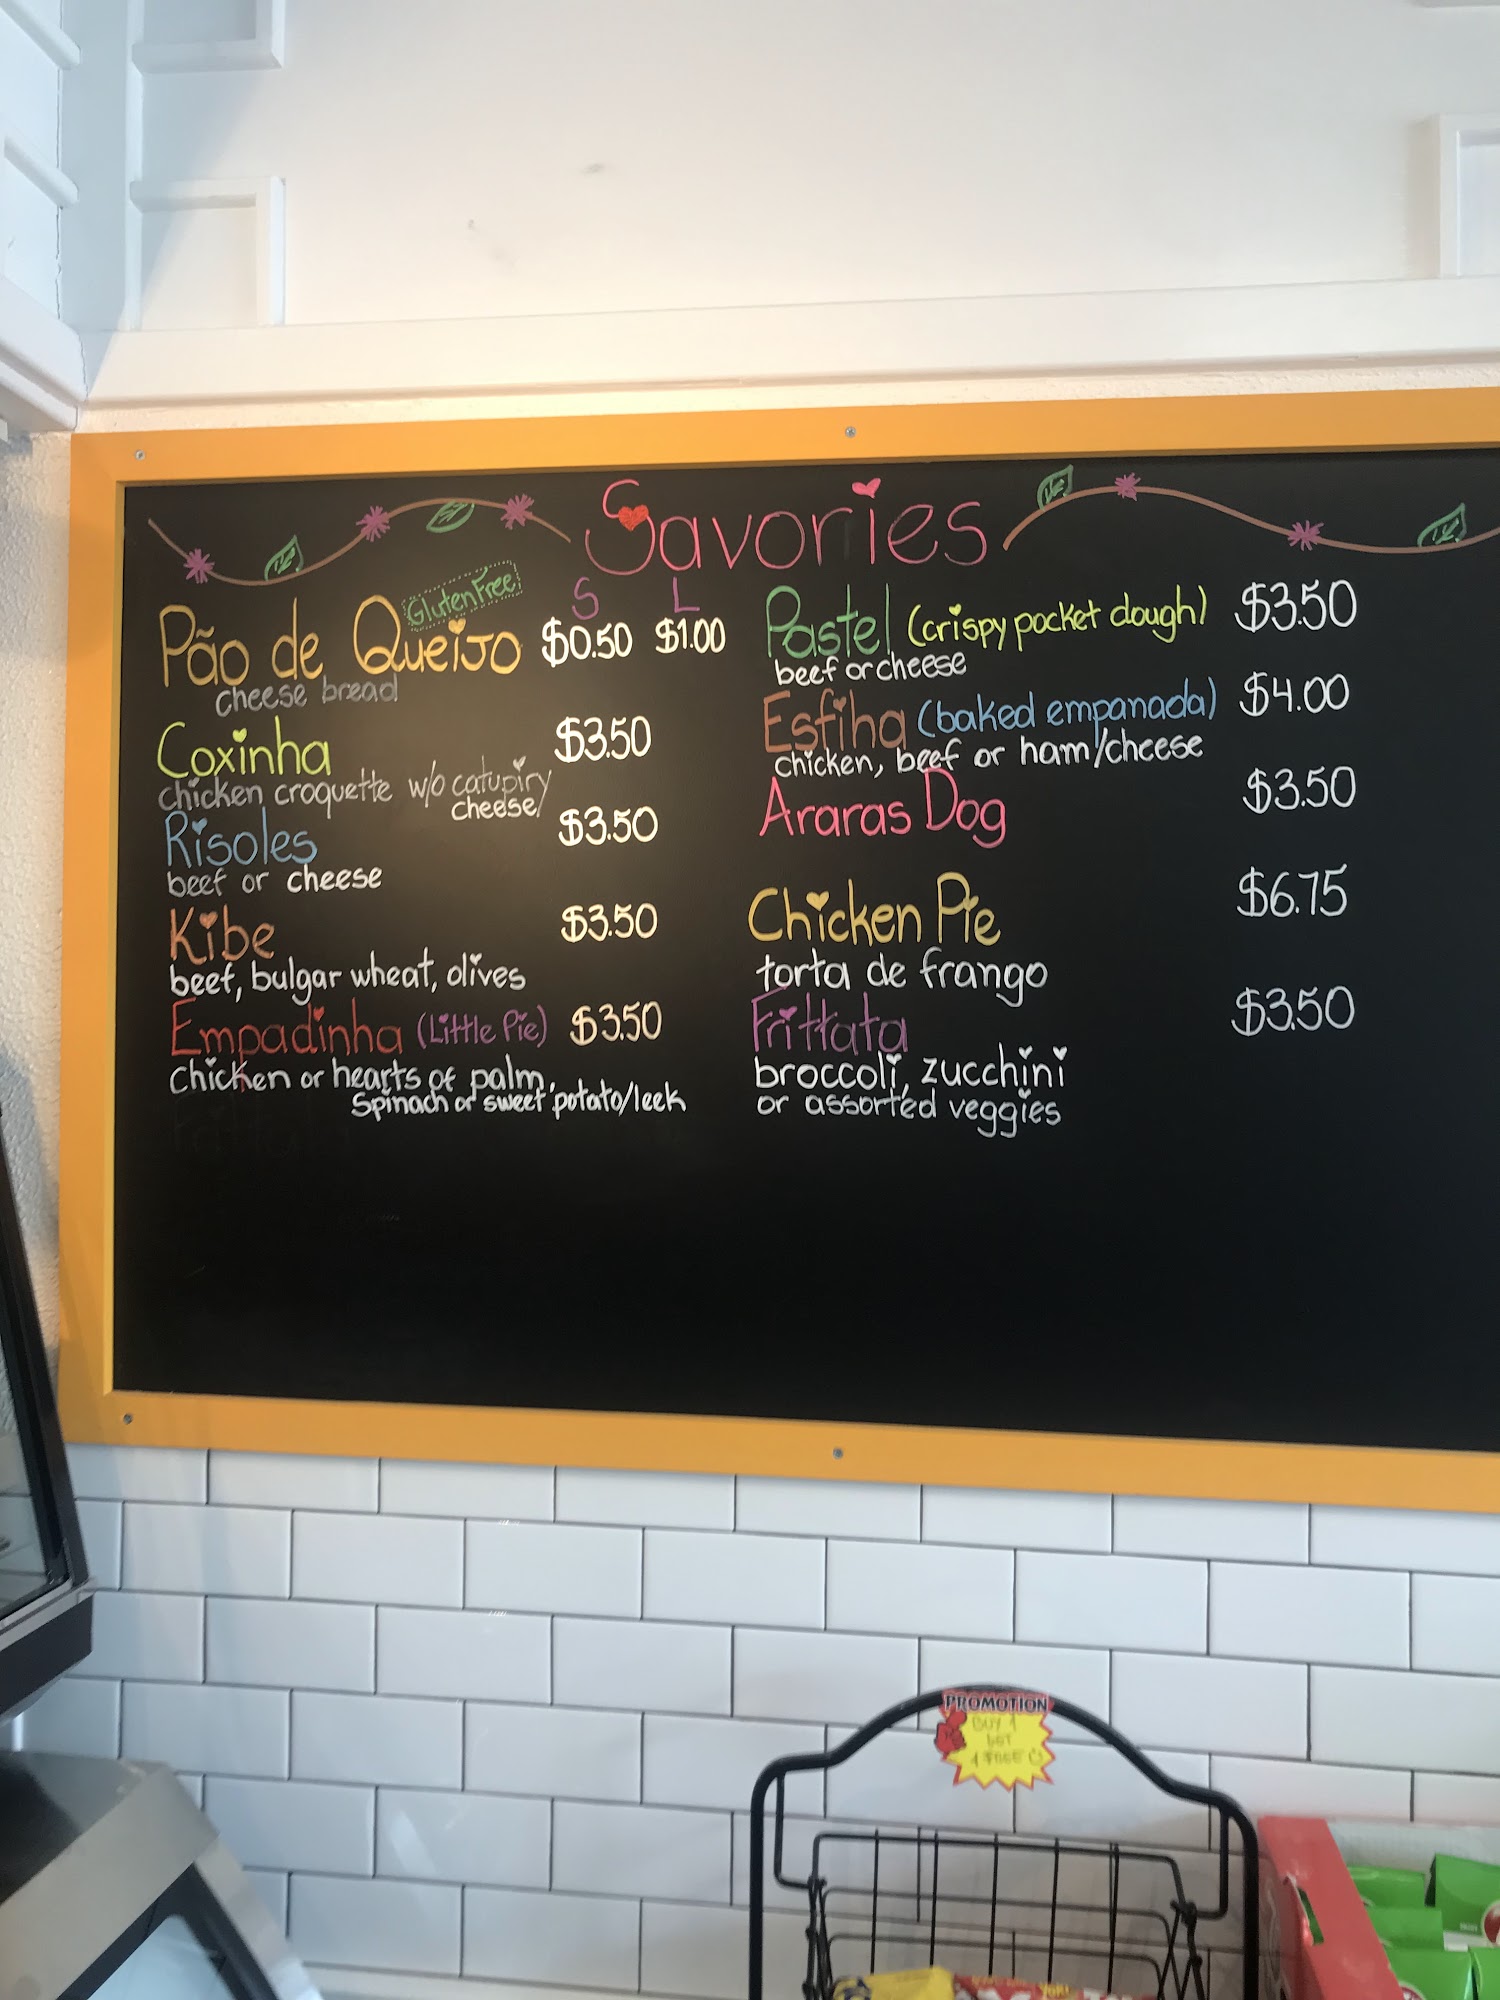 Savories
Gluten Free
S L
Pão de Queijo $0.50 $1.00
cheese bread
Coxinha $3.50
chicken croquette w/o catupiry
cheese
Risoles $3.50
beef or cheese
Kibe $3.50
beef, bulgar wheat, olives
Empadinha (Little Pie) $3.50
chicken or hearts of palm,
Spinach or sweet potato/leek
Pastel (crispy pocket dough) $3.50
beef or cheese
Esfiha (baked empanada) $4.00
chicken, beef or ham/cheese
Araras Dog $3.50
Chicken Pie $6.75
torta de frango
Frittata $3.50
broccoli, zucchini
or assorted veggies
PROMOTION
BUY 1
GET
1 FREE